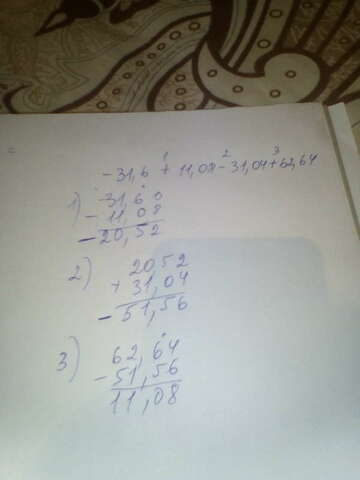 =
1 2 3
-31,6 + 11,08 - 31,04 + 62,64
1) 31,60
- 11,08
-20,52
2) 20,52
+ 31,04
-51,56
3) 62,64
- 51,56
11,08